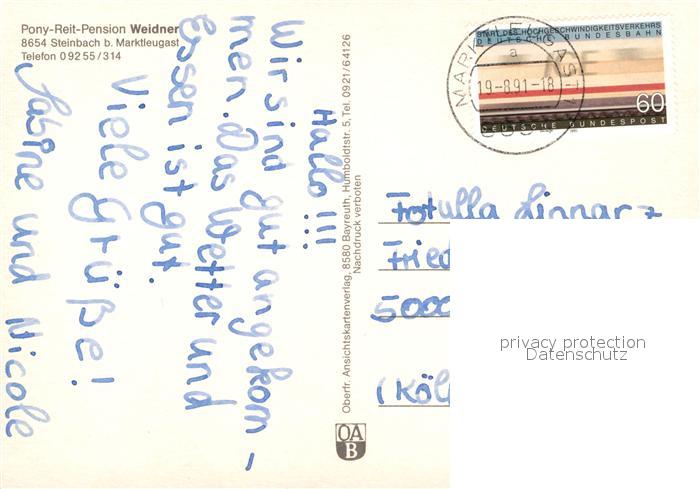 Pony-Reit-Pension Weidner
8654 Steinbach b. Marktleugast
Telefon 0 92 55 / 314
Hallo !!!
Wir sind gut angekom-
men. Das Wetter und
Essen ist gut.
Viele Grüße!
Sabine und Nicole
Oberfr. Ansichtskartenverlag, 8580 Bayreuth, Humboldtstr. 5, Tel. 09 21 / 6 41 26
Nachdruck verboten
OA
B
START DES HOCHGESCHWINDIGKEITSVERKEHRS
DEUTSCHE BUNDESBAHN
60
DEUTSCHE BUNDESPOST
MARKTLEUGAST
a
19.-8.91-18
Linnarz
Fried
5000
(Köl
privacy protection
Datenschutz